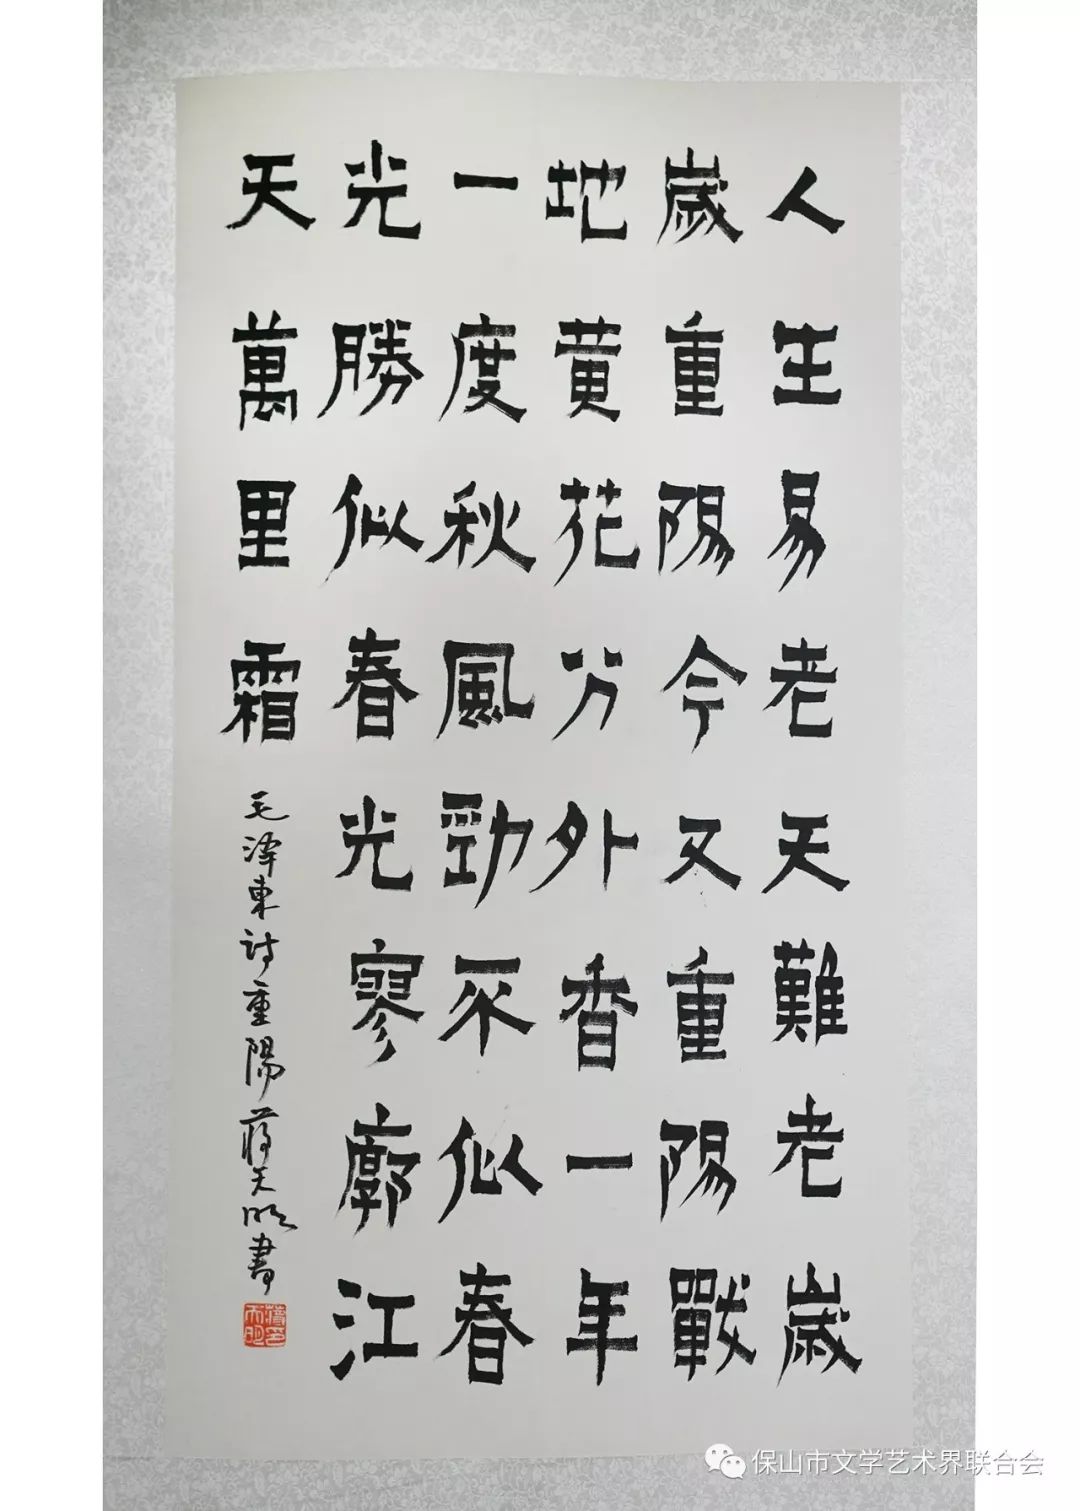 人生易老天難老歲
歲重陽今又重陽戰
地黄花分外香一年
一度秋風勁不似春
光勝似春光寥廓江
天萬里霜
毛泽東詩重陽蔣天明書
蔣天明印
保山市文学艺术界联合会